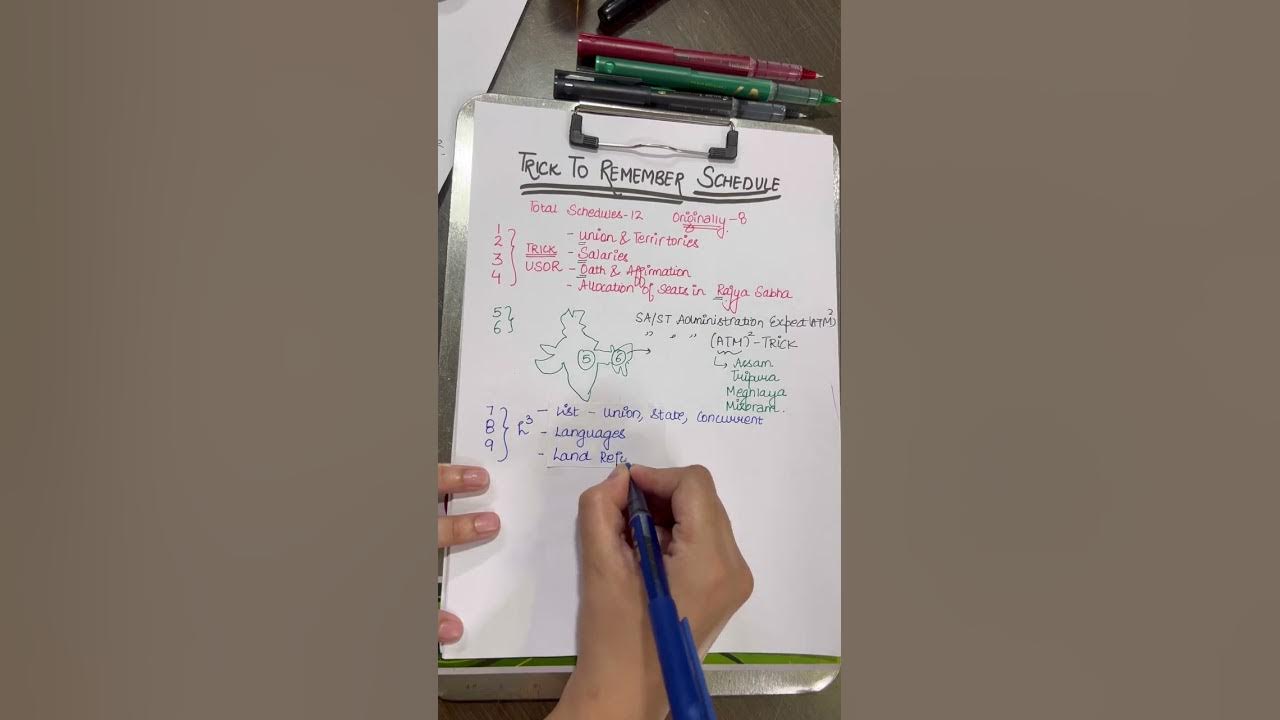 TRICK TO REMEMBER SCHEDULE
Total Schedules-12 Originally-8
1 - Union & Terrirtories
2 TRICK - Salaries
3 USOR - Oath & Affirmation
4 - Allocation of Seats in Rajya Sabha
5 SA/ST Administration Expect (ATM)²
6 " " " (ATM)²-TRICK
5 6 Assam
Tripura
Meghlaya
Mizoram.
7 - List - Union, State, Concurrent
8 L³ - Languages
9 - Land Refo